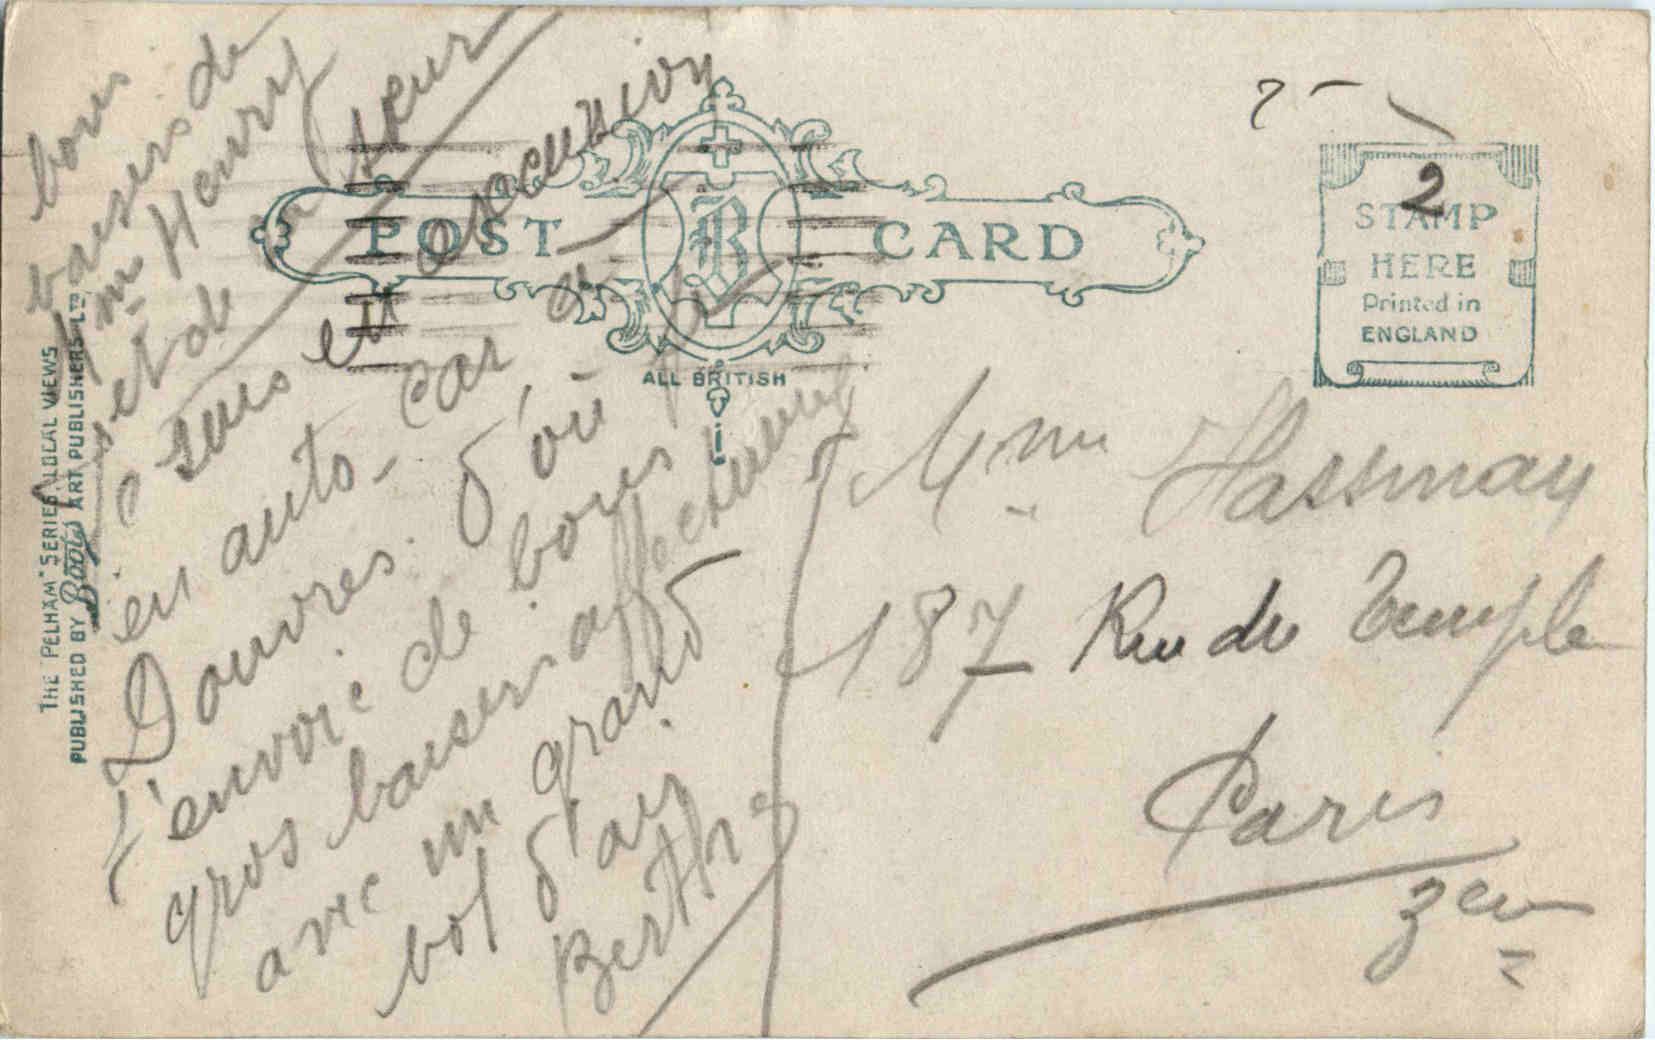 bons
baisers de
Mr Henry
et de sa sœur
suis en excursion
en auto-car à
Douvres. d'où je
t'envoie de bons
gros baisers affectueux
avec un grand
bol d'air
Berthe
POST CARD
B
ALL BRITISH
2
STAMP
HERE
Printed in
ENGLAND
Mme Hassmay
187 Rue du Temple
Paris
3em
THE "PELHAM" SERIES, LOCAL VIEWS
PUBLISHED BY Boots ART PUBLISHERS LTD